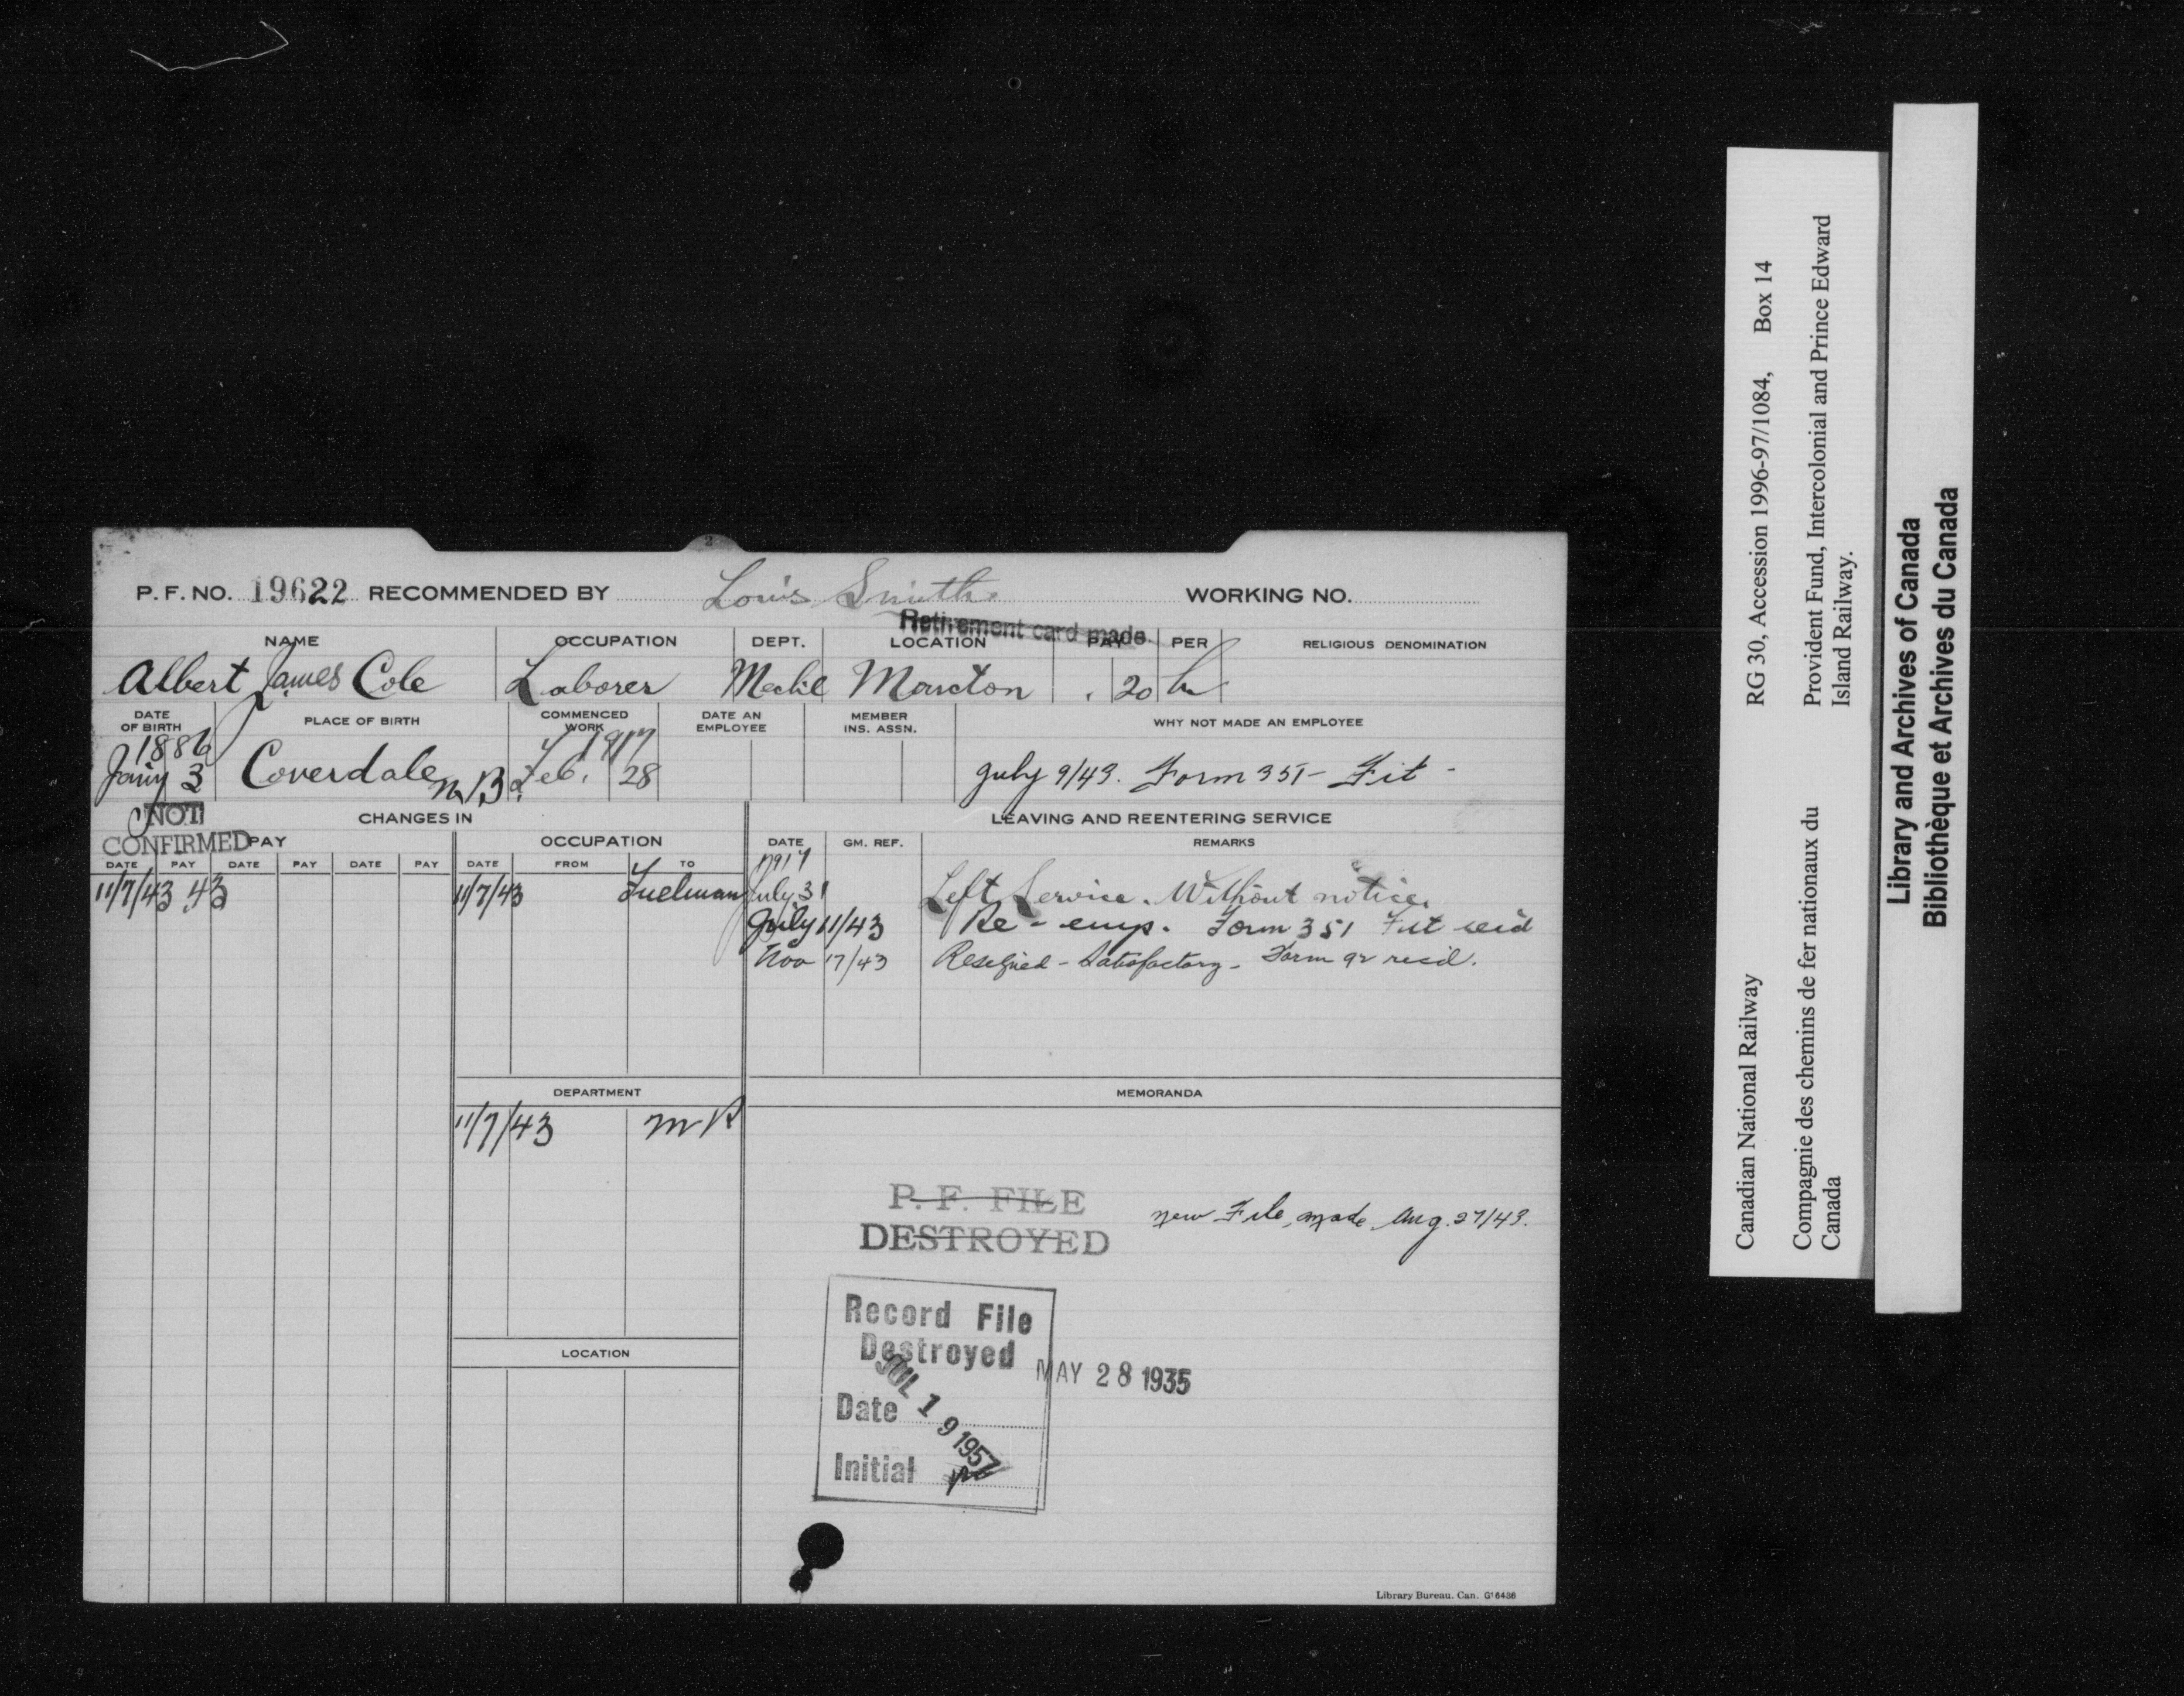 2
P. F. NO. 19622 RECOMMENDED BY Louis Smith WORKING NO.
Retirement card made.
NAME OCCUPATION DEPT. LOCATION PAY PER RELIGIOUS DENOMINATION
Albert James Cole Laborer Mechl Moncton . 20 hr
DATE OF BIRTH PLACE OF BIRTH COMMENCED WORK DATE AN EMPLOYEE MEMBER INS. ASSN. WHY NOT MADE AN EMPLOYEE
1886 1917
Jany 3 Coverdale N.B. Feb. 28 July 9/43. Form 351 - Fit -
NOT CONFIRMED
CHANGES IN LEAVING AND REENTERING SERVICE
PAY OCCUPATION DATE GM. REF. REMARKS
DATE PAY DATE PAY DATE PAY DATE FROM TO
1917
11/7/43 .43 11/7/43 Fuelman July 31 Left Service. Without notice.
July 11/43 Re-emp. Form 351 Fit rec'd
Nov 17/43 Resigned - Satisfactory - Form 92 recd.
DEPARTMENT MEMORANDA
11/7/43 M P
P. F. FILE
DESTROYED
new File made Aug. 27/43.
Record File
Destroyed
MAY 28 1935
Date JUL 19 1957
Initial
LOCATION
Library Bureau. Can. G16436
Canadian National Railway RG 30, Accession 1996-97/1084, Box 14
Compagnie des chemins de fer nationaux du Provident Fund, Intercolonial and Prince Edward
Canada Island Railway.
Library and Archives of Canada
Bibliothèque et Archives du Canada